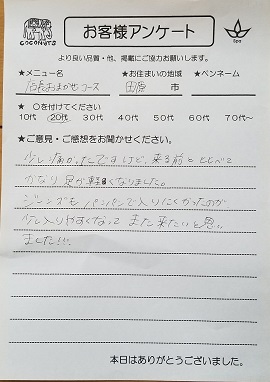 COCONUTS
お客様アンケート
Spa
より良い品質・他、掲載にご協力お願いします。
★メニュー名 ★お住まいの地域 ★ペンネーム
店長おまかせコース 田原 市
★ 〇を付けてください
10代 20代 30代 40代 50代 60代 70代~
★ご意見・ご感想をお聞かせください。
少し痛かったですけど、来る前と比べて
かなり足が軽くなりました。
ジーンズもパンパンで入りにくかったのが
少し入りやすくなって また来たいと思い
ました!!!
本日はありがとうございました。